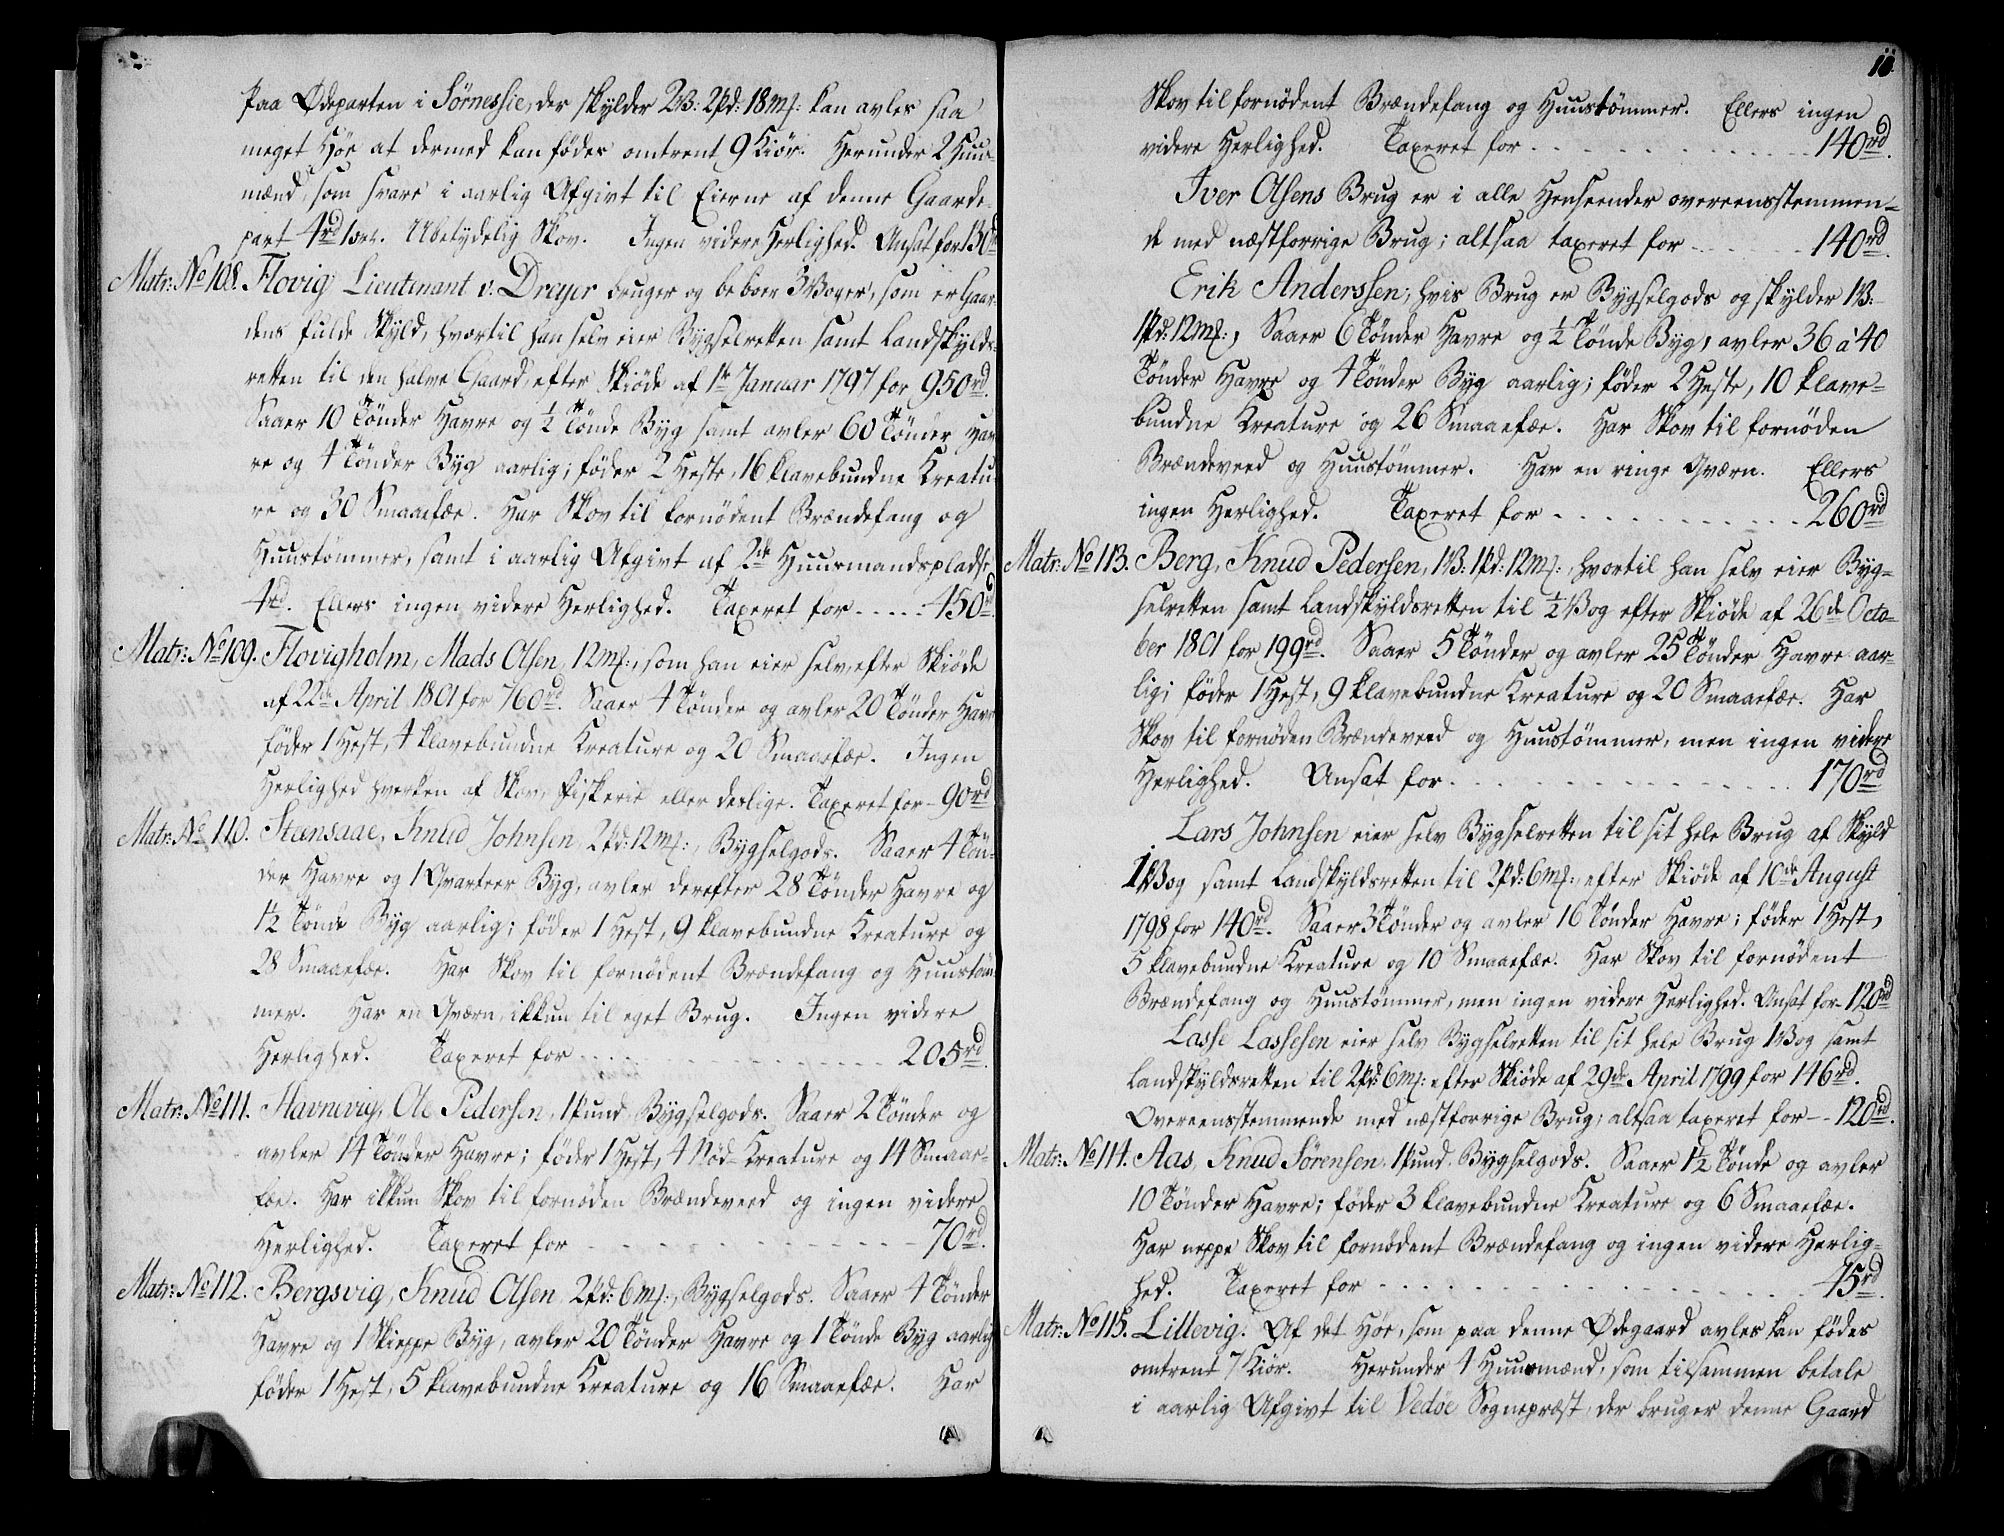 Paa Ødeparten i Sörnessie, der skylder 2V3: 2Pd: 18m[: kan avles saa
meget Höe at dermed kan födes omtrent 9 Kiör. Herunder 2 Huus-
mænd, som svare i aarlig Afgivt til Eierne af denne Gaarde-
part 4rd 1ort. Ubetydelig Skov. Ingen videre Herlighed. Ansat for 130rd
Matr: No 108. Flovig, Lieutenant v. Dreyer bruger og beboer 3 Voger, som er Gaar-
dens fulde Skyld, hvortil han selv eier Bygselretten samt Landskylds-
retten til den halve Gaard, efter Skiöde af 1ste Januar 1797 for 950rd.
Saaer 10 Tönder Havre og ½ Tönde Byg samt avler 60 Tönder Hav-
re og 4 Tönder Byg aarlig; föder 2 Heste, 16 klavebundne Kreatu-
re og 30 Smaaefæe. Har Skov til fornödent Brændefang og
Huustömmer, samt i aarlig Afgivt af 2de Huusmandspladse
4rd. Ellers ingen videre Herlighed. Taxeret for ..... 450rd.
Matr: No 109. Flovigholm, Mads Olsen, 12m[:, som han eier selv, efter Skiöde
af 22de April 1801 for 760rd. Saaer 4 Tönder og avler 20 Tönder Havre
föder 1 Hest, 4 klavebundne Kreature og 20 Smaaefæe. Ingen
Herlighed hverken af Skov, Fiskerie eller deslige. Taxeret for - 90rd
Matr: No 110. Stensaae, Knud Johnsen, 2Pd: 12m[:, Bygselgods. Saaer 4 Tön-
der Havre og 1 Qvarteer Byg, avler derefter 28 Tönder Havre og
1½ Tönde Byg aarlig; föder 1 Hest, 9 klavebundne Kreature og
28 Smaaefæe. Har Skov til fornödent Brændefang og Huustöm-
mer. Har en Qværn, ikkun til eget Brug. Ingen videre
Herlighed. Taxeret for ........ 205rd.
Matr: No 111. Havnevig, Ole Pedersen, 1 Pund, Bygselgods. Saaer 2 Tönder og
avler 14 Tönder Havre; föder 1 Hest, 4 Nöd-Kreature og 14 Smaae-
fæe. Har ikkun Skov til fornöden Brændeveed og ingen videre
Herlighed. Taxeret for ........ 70rd.
Matr: No 112. Bergsvig, Knud Olsen, 2Pd: 6m[:, Bygselgods. Saaer 4 Tönder
Havre og 1 Skieppe Byg, avler 20 Tönder Havre og 1 Tönde Byg aarlig
föder 1 Hest, 5 klavebundne Kreature og 16 Smaaefæe. Har
Skov til fornödent Brændefang og Huustömmer. Ellers ingen
videre Herlighed. Taxeret for ........ 140rd.
Iver Olsens Brug er i alle Henseender overeensstemmen-
de med næstforrige Brug; altsaa taxeret for ..... 140rd.
Erik Anderssen, hvis Brug er Bygselgods og skylder 1V3:
1Pd: 12m[:, Saaer 6 Tönder Havre og ½ Tönde Byg, avler 36 à 40
Tönder Havre og 4 Tönder Byg aarlig; föder 2 Heste, 10 klave-
bundne Kreature og 26 Smaaefæe. Har Skov til fornöden
Brændeveed og Huustömmer. Har en ringe Qværn. Ellers
ingen Herlighed. Taxeret for ........ 260rd.
Matr: No 113. Berg, Knud Pedersen, 1V3: 1Pd: 12m[:, hvortil han selv eier Byg-
selretten samt Landskyldsretten til ½ Vog efter Skiöde af 26de Octo-
ber 1801 for 199rd. Saaer 5 Tönder og avler 25 Tönder Havre aar-
lig; föder 1 Hest, 9 klavebundne Kreature og 20 Smaaefæe. Har
Skov til fornöden Brændeveed og Huustömmer, men ingen videre
Herlighed. Ansat for ........ 170rd
Lars Johnsen eier selv Bygselretten til sit hele Brug af Skyld
1 Vog samt Landskyldsretten til 2Pd: 6m[:, efter Skiöde af 10de August
1798 for 140rd. Saaer 3 Tönder og avler 16 Tönder Havre; föder 1 Hest,
5 klavebundne Kreature og 10 Smaaefæe. Har Skov til fornödent
Brændefang og Huustömmer, men ingen videre Herlighed. Ansat for - 120rd
Lasse Lassesen eier selv Bygselretten til sit hele Brug 1 Vog samt
Landskyldsretten til 2Pd: 6m[: efter Skiöde af 29de April 1799 for 146rd.
Overeensstemmende med næstforrige Brug; altsaa taxeret for - - 120rd.
Matr: No 114. Aas, Knud Sörensen, 1 Pund, Bygselgods. Saaer 1½ Tönde og avler
10 Tönder Havre; föder 3 klavebundne Kreature og 6 Smaaefæe.
Har neppe Skov til fornödent Brændefang og ingen videre Herlig-
hed. Taxeret for ........ 45rd.
Matr: No 115. Lillevig. Af det Höe, som paa denne Ødegaard avles kan födes
omtrent 7 Kiör. Herunder 4 Huusmænd, som tilsammen betale
i aarlig Afgivt til Vedöe Sognepræst, der bruger denne Gaard